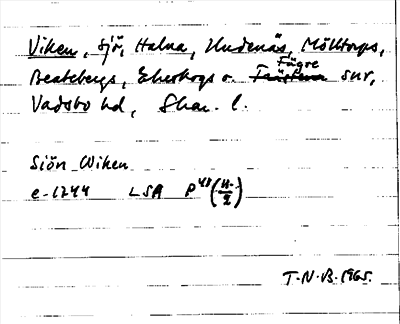 Viken, sjö, Halna, Undenäs, Mölltorps,
Beatebergs, Ekeskogs o. Fägre snr,
Vadsbo hd, Skar. l.
Sjön Wiken
e. 1744 LSA P 48 (4/2)
T.N.B. 1965.